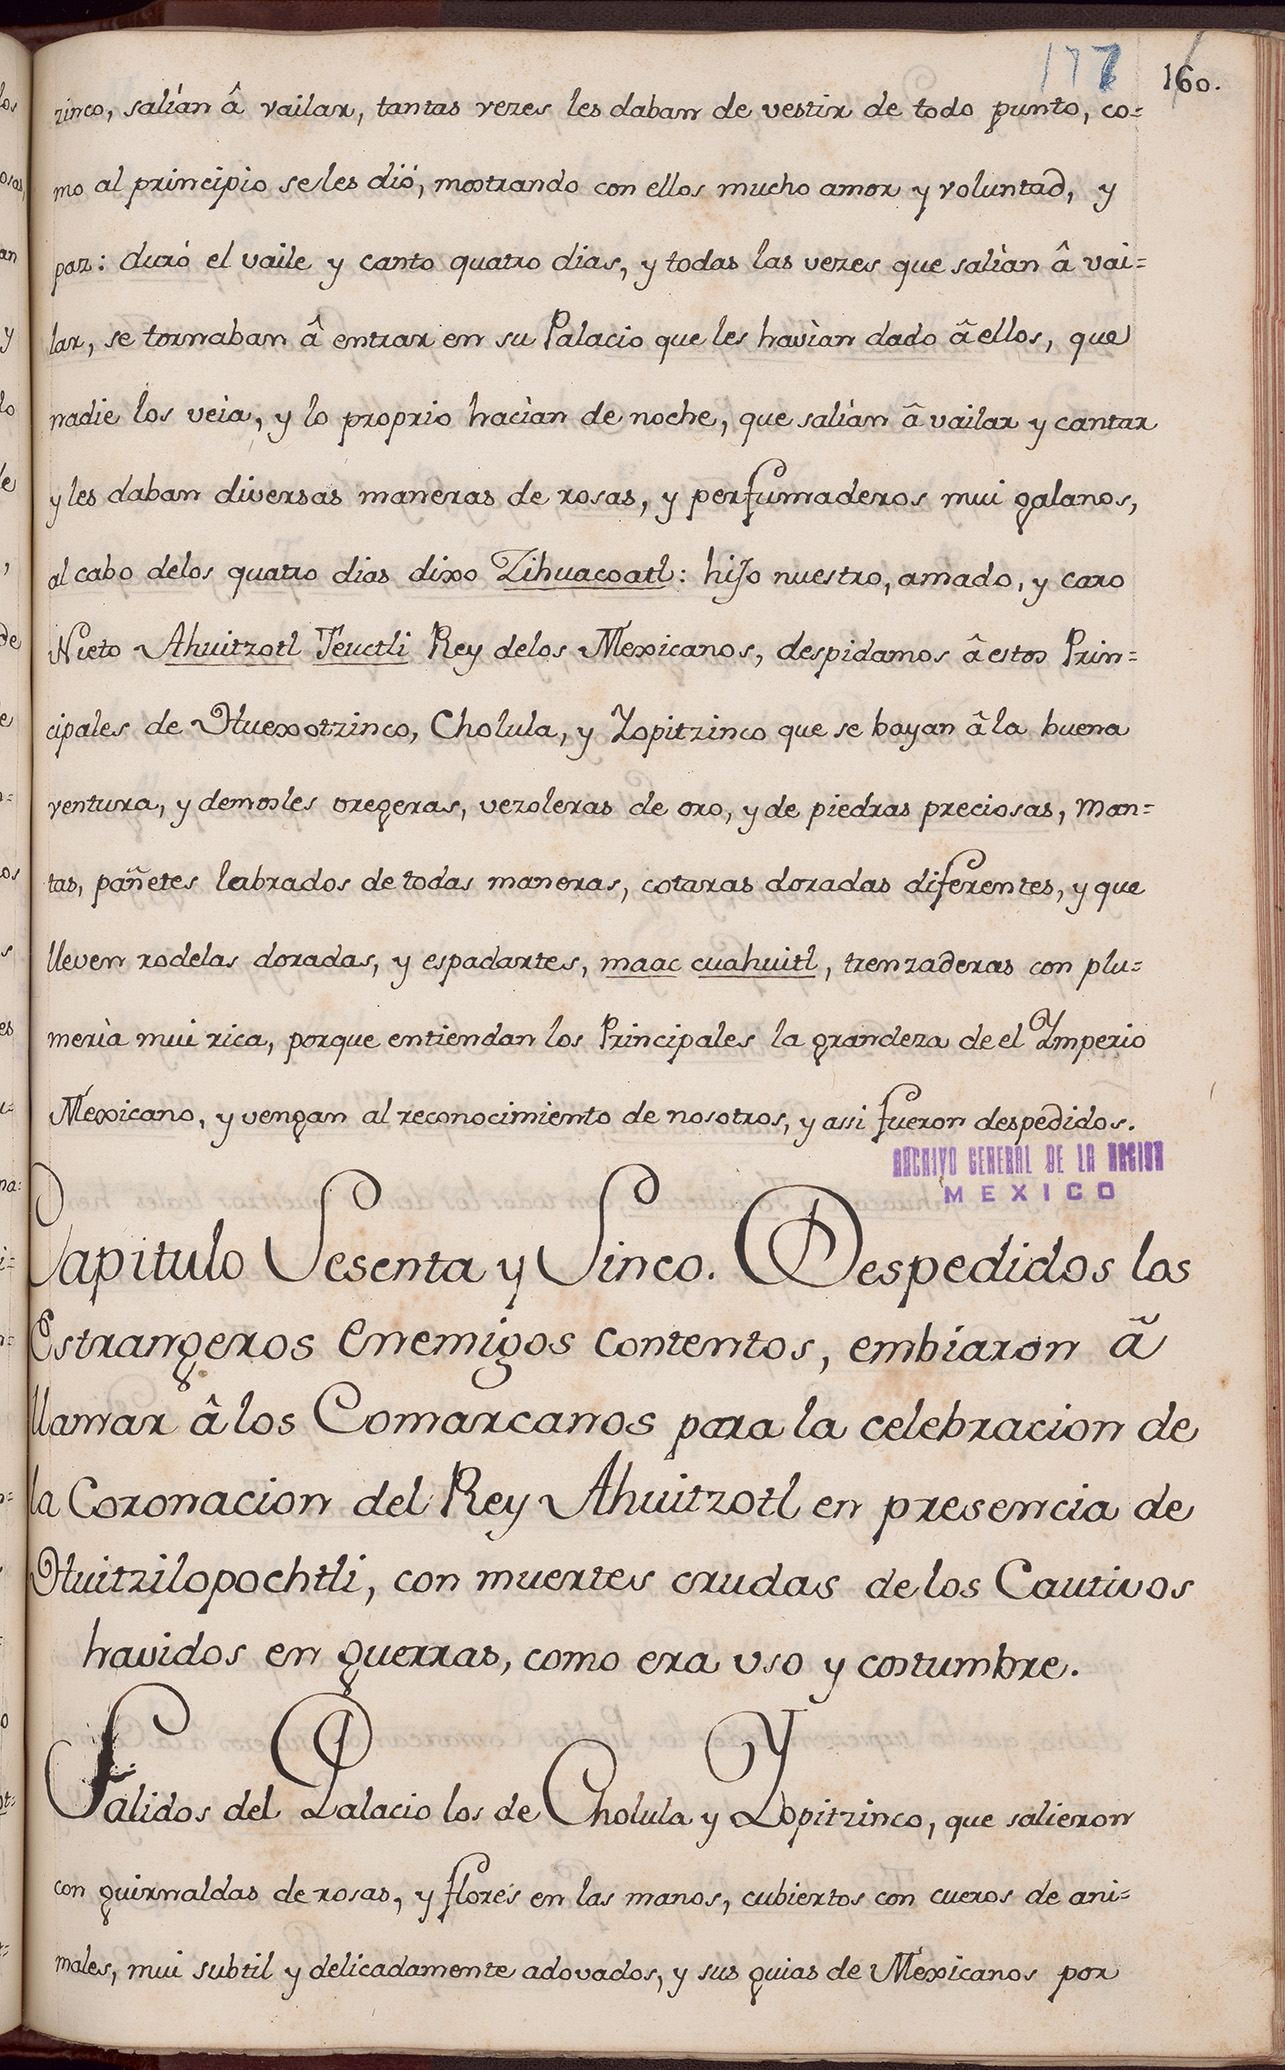 177 160.
zinco, salían â vailar, tantas vezes les daban de vestir de todo punto, co=
mo al principio se les dió, mostrando con ellos mucho amor y voluntad, y
paz: duró el vaile y canto quatro dias, y todas las vezes que salìan â vai=
lar, se tornaban â entrar en su Palacio que les havìan dado â ellos, que
nadie los veìa, y lo proprio hacìan de noche, que salìan â vailar y cantar
y les daban diversas maneras de rosas, y perfumaderos mui galanos,
al cabo delos quatro dias dixo Zihuacoatl: hijo nuestro, amado, y caro
Nieto Ahuitzotl Teuctli Rey delos Mexicanos, despidamos â estos Prin=
cipales de Huexotzinco, Cholula, y Yopitzinco que se bayan â la buena
ventura, y demosles oregeras, vezoleras de oro, y de piedras preciosas, man=
tas, pañetes labrados de todas maneras, cotaras doradas diferentes, y que
lleven rodelas doradas, y espadartes, maac cuahuitl, trenzaderas con plu=
merìa mui rica, porque entiendan los Principales la grandeza de el Ymperio
Mexicano, y vengan al reconocimiento de nosotros, y assi fueron despedidos.
ARCHIVO GENERAL DE LA NACION
MEXICO
Capitulo Sesenta y Sinco. Despedidos los
Estrangeros enemigos contentos, embiaron ã
llamar â los Comarcanos para la celebracion de
la Coronacion del Rey Ahuitzotl en presencia de
Huitzilopochtli, con muertes crudas de los Cautivos
havidos en guerras, como era uso y costumbre.
Salidos del Palacio los de Cholula y Yopitzinco, que salieron
con guirnaldas de rosas, y flores en las manos, cubiertos con cueros de ani=
males, mui subtil y delicadamente adovados, y sus guias de Mexicanos por